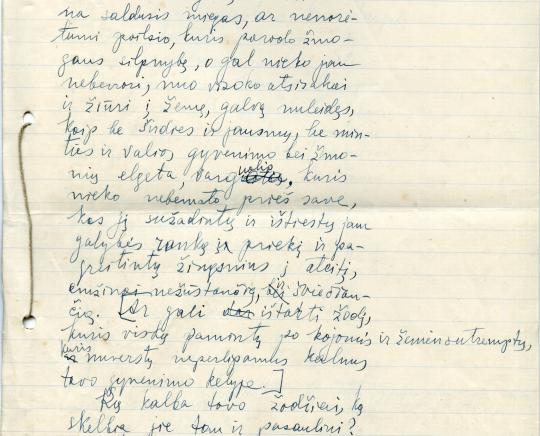 na saldusis miegas, ar nenorė-
tumi poilsio, kuris parodo žmo-
gaus silpnybę, o gal nieko jau
nebenori, nuo visko atsisakai
ir žiūri į žemę, galvą nuleidęs,
kaip be širdies ir jausmų, be min-
ties ir valios gyvenimo bei žmo-
nių elgeta, varguolio, kuris
nieko nebemato prieš save,
kas jį sužadintų ir ištiestų jam
galybės ranką į priekį ir pa-
greitintų žingsnius į ateitį,
amžinai nežūstančią, ir šviečian-
čią. [Ar gali dar ištarti žodį,
kuris visą pamintų po kojomis ir žemėn sutremptų,
kuris nuverstų neperlipamus kalnus
tavo gyvenimo kelyje.]
Ką kalba tavo žodžiai, ką
skelbia jie tau ir pasauliui?